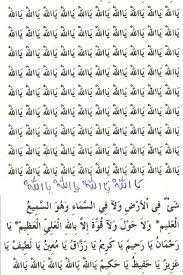 يَاالله يَاالله يَاالله يَاالله يَاالله يَاالله يَاالله
يَاالله يَاالله يَاالله يَاالله يَاالله يَاالله يَاالله
يَاالله يَاالله يَاالله يَاالله يَاالله يَاالله يَاالله
يَاالله يَاالله يَاالله يَاالله يَاالله يَاالله يَاالله
يَاالله يَاالله يَاالله يَاالله يَاالله يَاالله يَاالله
يَاالله يَاالله يَاالله يَاالله يَاالله يَاالله يَاالله
يَاالله يَاالله يَاالله يَاالله يَاالله يَاالله يَاالله
يَاالله يَاالله يَاالله يَاالله يَاالله يَاالله يَاالله
يَاالله يَاالله يَاالله يَاالله يَاالله يَاالله يَاالله
يَاالله يَاالله يَاالله يَاالله يَاالله يَاالله يَاالله
يَاالله يَاالله يَاالله يَاالله يَاالله يَاالله يَاالله
يا الله يا الله يا الله يا الله
شَيْءٌ فِي الْأَرْضِ وَلَا فِي السَّمَاءِ وَهُوَ السَّمِيعُ
الْعَلِيمُ * وَلَا حَوْلَ وَلَا قُوَّةَ إِلَّا بِاللهِ الْعَلِيِّ الْعَظِيمِ * يَا
رَحْمَانُ يَا رَحِيمُ يَا كَرِيمُ يَا رَزَّاقُ يَا مُعِينُ يَا لَطِيفُ يَا
عَزِيزُ يَا حَفِيظُ يَا حَكِيمُ يَاالله يَاالله يَاالله